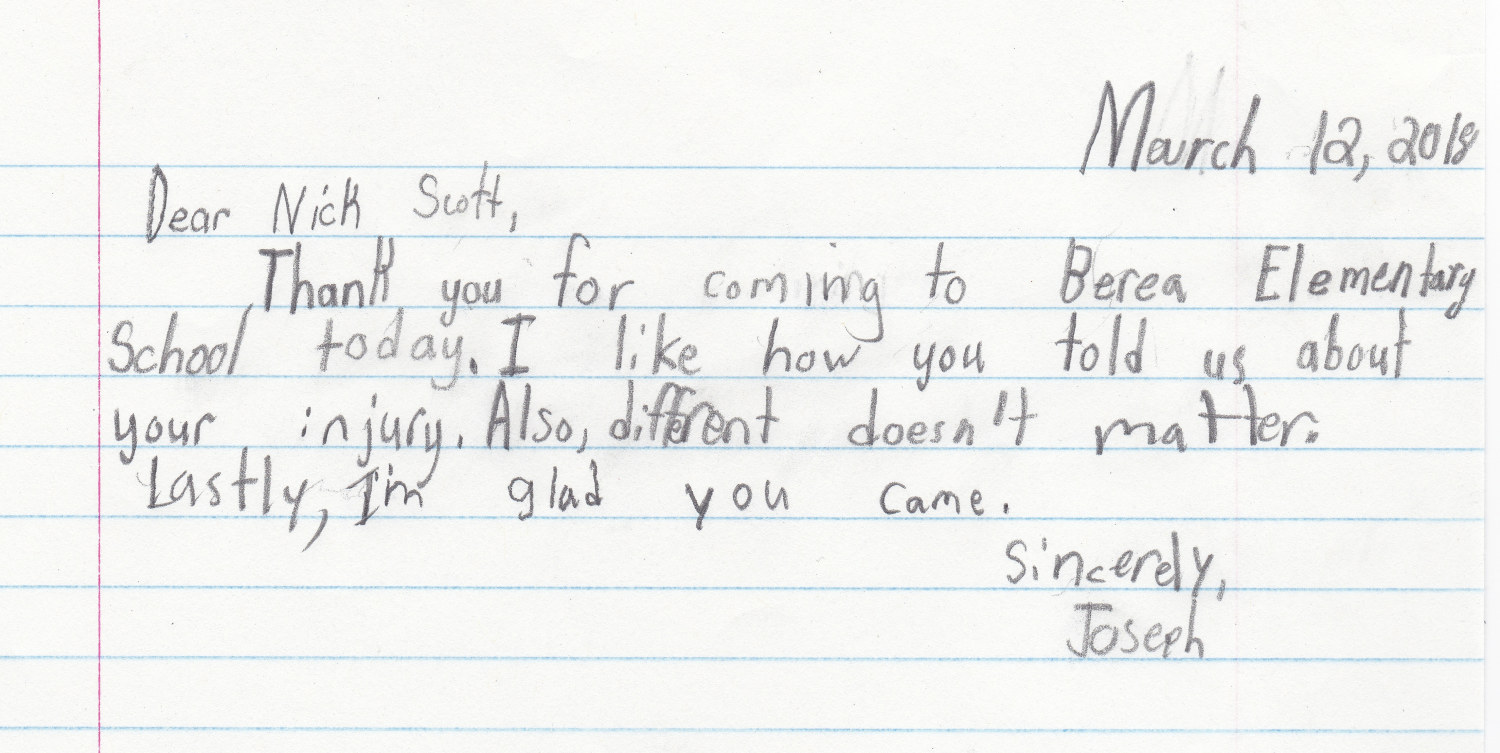 March 12, 2018
Dear Nick Scott,
Thank you for coming to Berea Elementary
School today. I like how you told us about
your injury. Also, different doesn't matter.
Lastly, I'm glad you came.
Sincerely,
Joseph